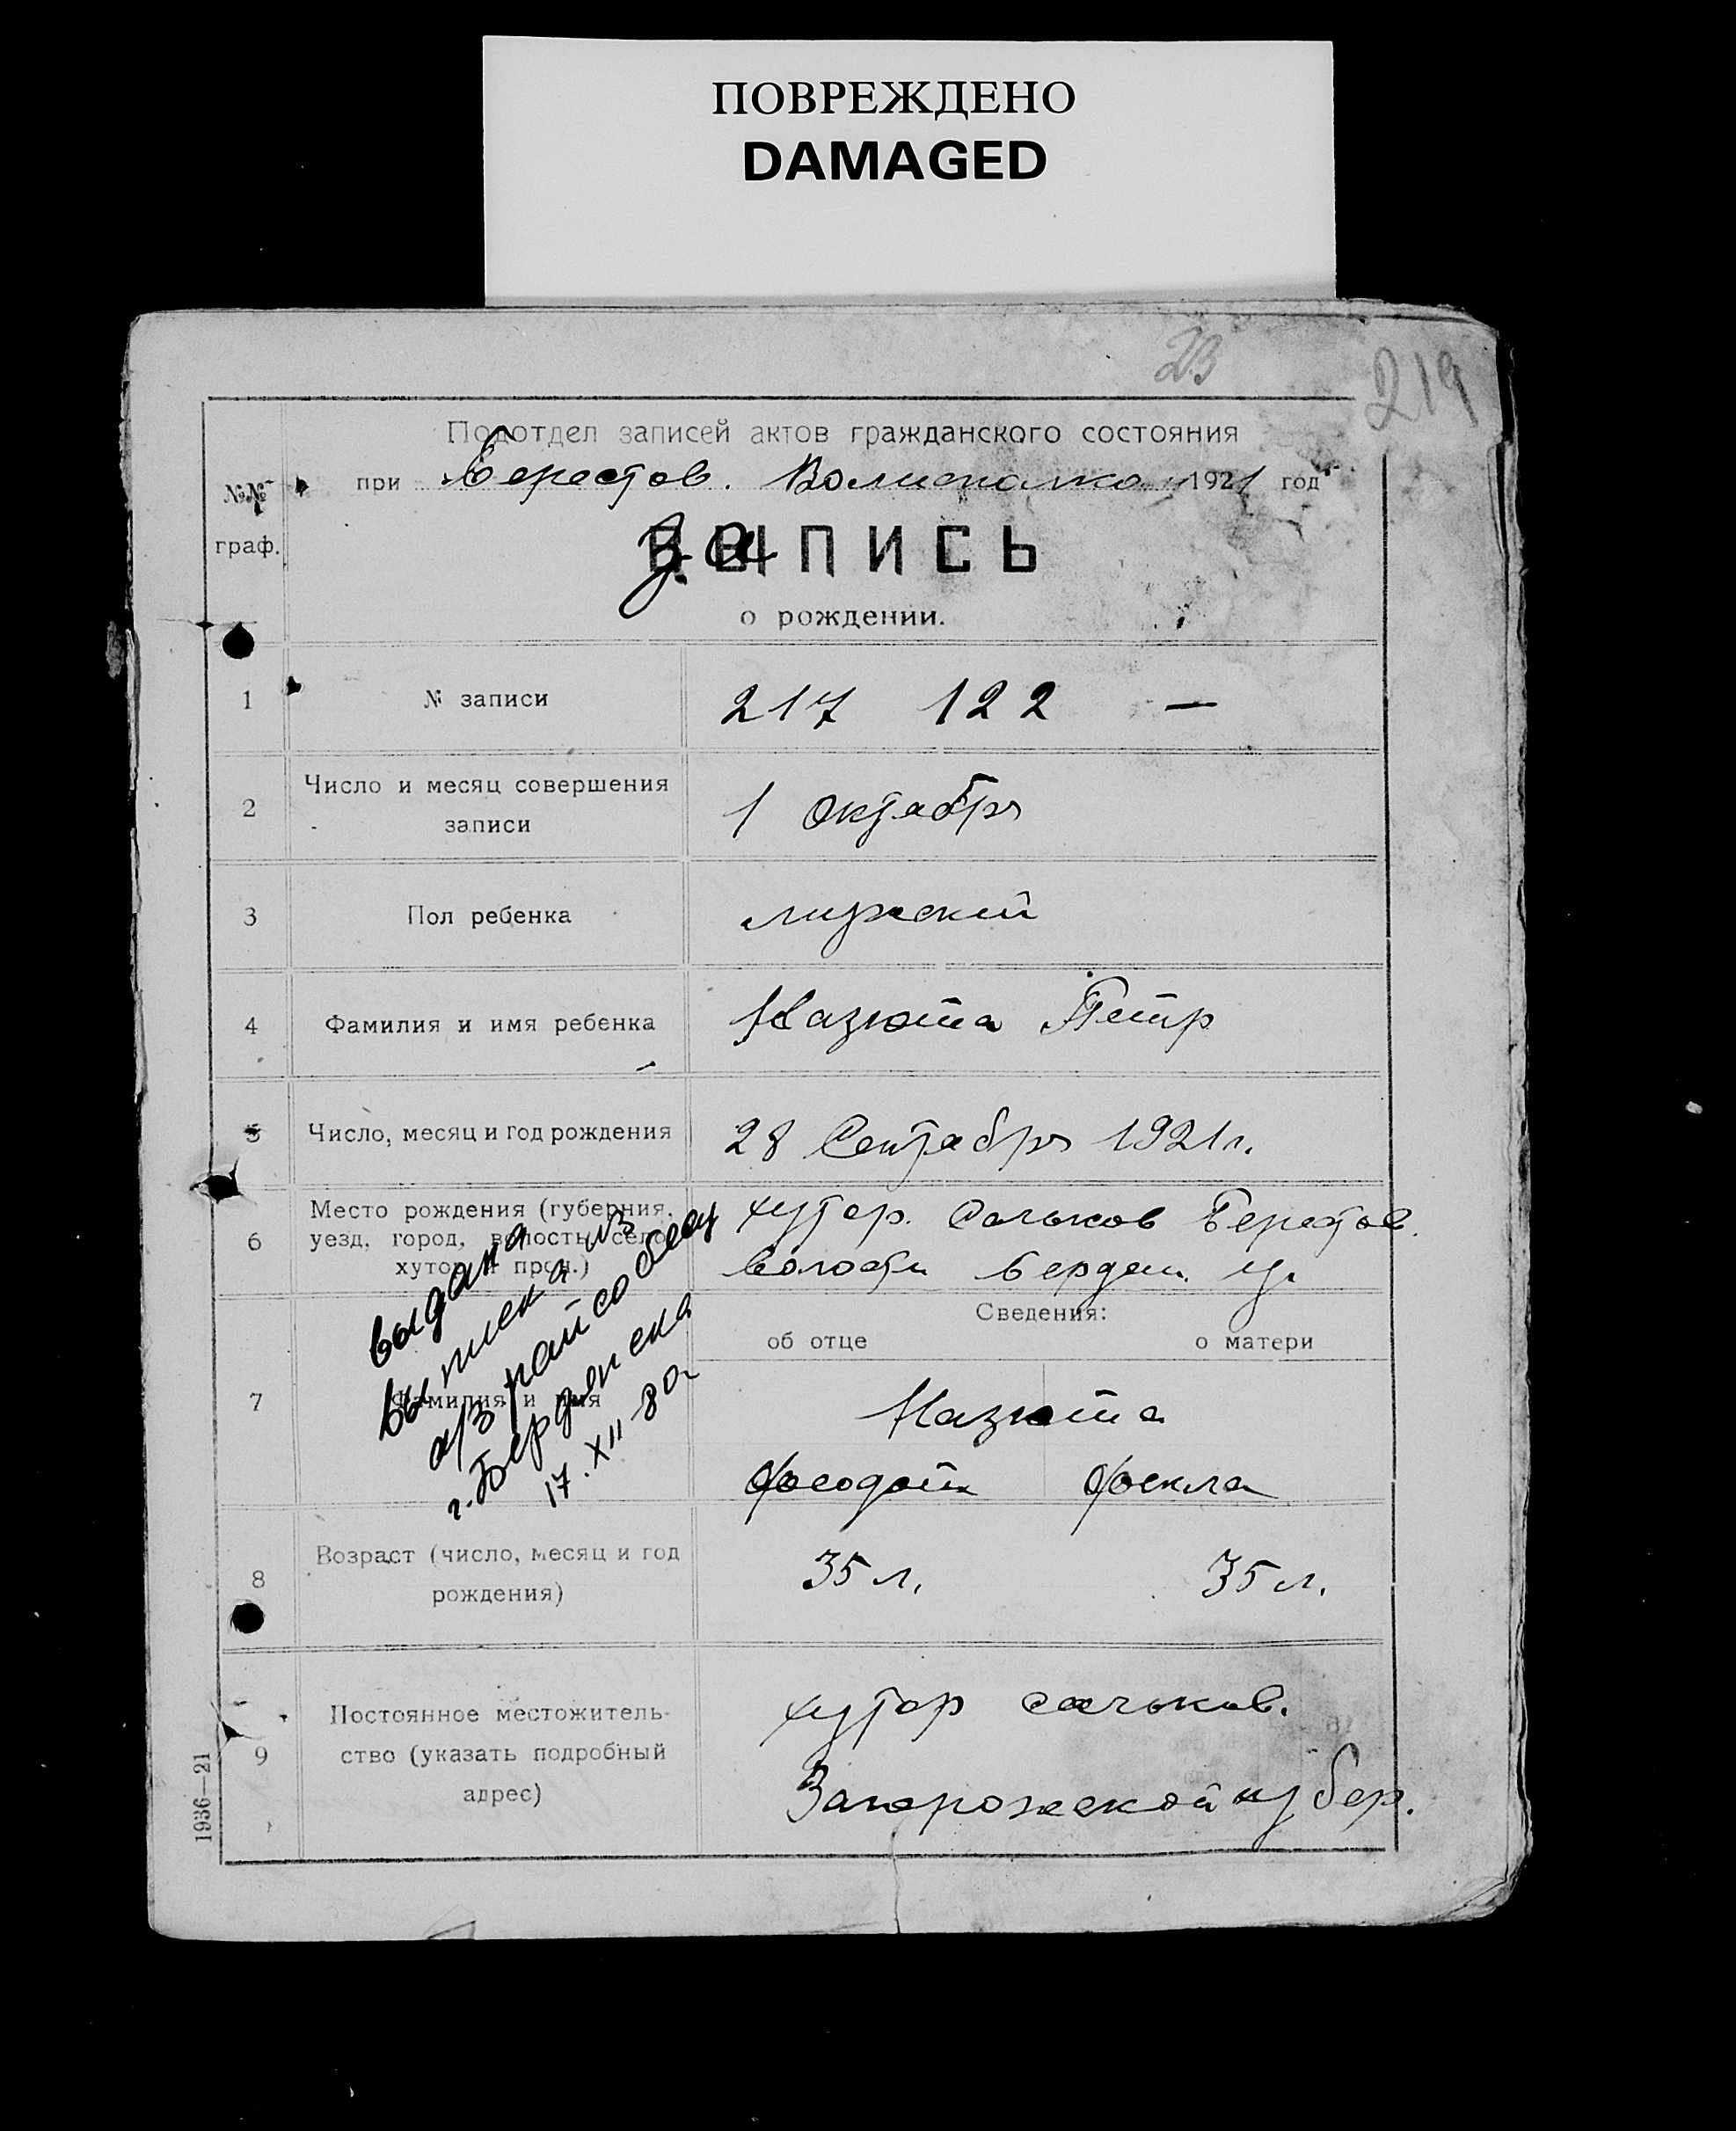 ПОВРЕЖДЕНО
DAMAGED
23
219
Подотдел записей актов гражданского состояния
№№ граф.
при Берестов. Волисполко 1921 год
запись
о рождении.
1 № записи 217 122 —
2 Число и месяц совершения записи 1 октября
3 Пол ребенка мужский
4 Фамилия и имя ребенка Мазюта Петр
5 Число, месяц и год рождения 28 Сентября 1921 г.
6 Место рождения (губерния, уезд, город, волость, село, хутор и проч.) хутор. Сальков Берестов.
волости Бердян. у.
Сведения:
об отце о матери
7 Фамилия и имя Мазюта
Феодот Фекла
выдана
выписка из
а/з райсобесу
г. Бердянска
17.XII-80
8 Возраст (число, месяц и год рождения) 35 л. 35 л.
9 Постоянное местожительство (указать подробный адрес) хутор Сальков.
Запорожской губер.
1936—21